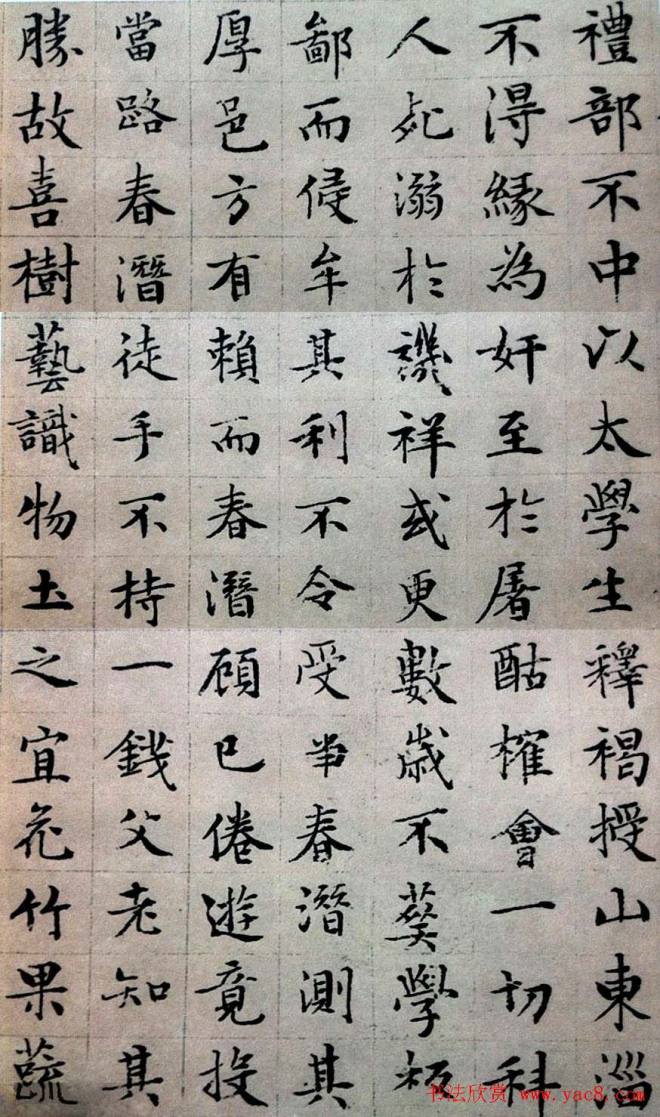 禮部不中以太學生釋褐授山東淄
不得緣為奸至於屠酤榷會一切科
人死溺於譏祥或更數歲不葬學
鄙而侵牟其利不令受半春潛測其
厚邑方有賴而春潛顧已倦遊竟投
當路春潛徒手不持一錢父老知其
勝故喜樹藝識物土之宜花竹果蔬
书法欣赏 www.yac8.com